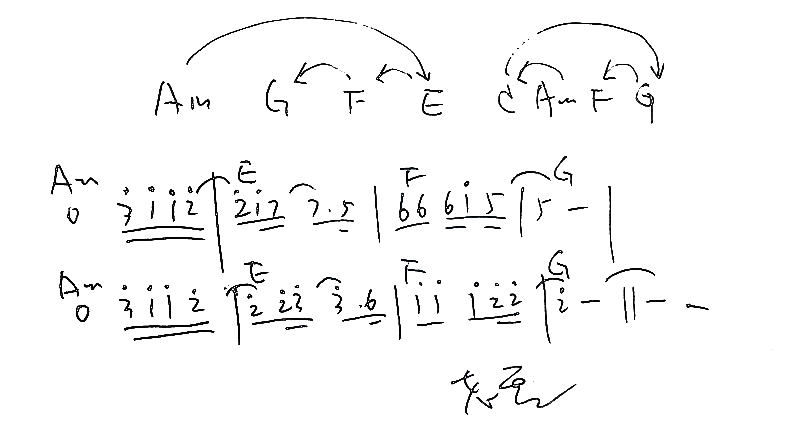 Am G F E C Am F G
Am E F G
0 3 1 1 2 | 2 1 7 7 . 5 | 6 6 6 1 5 | 5 – |
Am E F G
0 3 1 1 2 | 2 2 3 3 . 6 | 1 1 1 2 2 | 2 – || – –